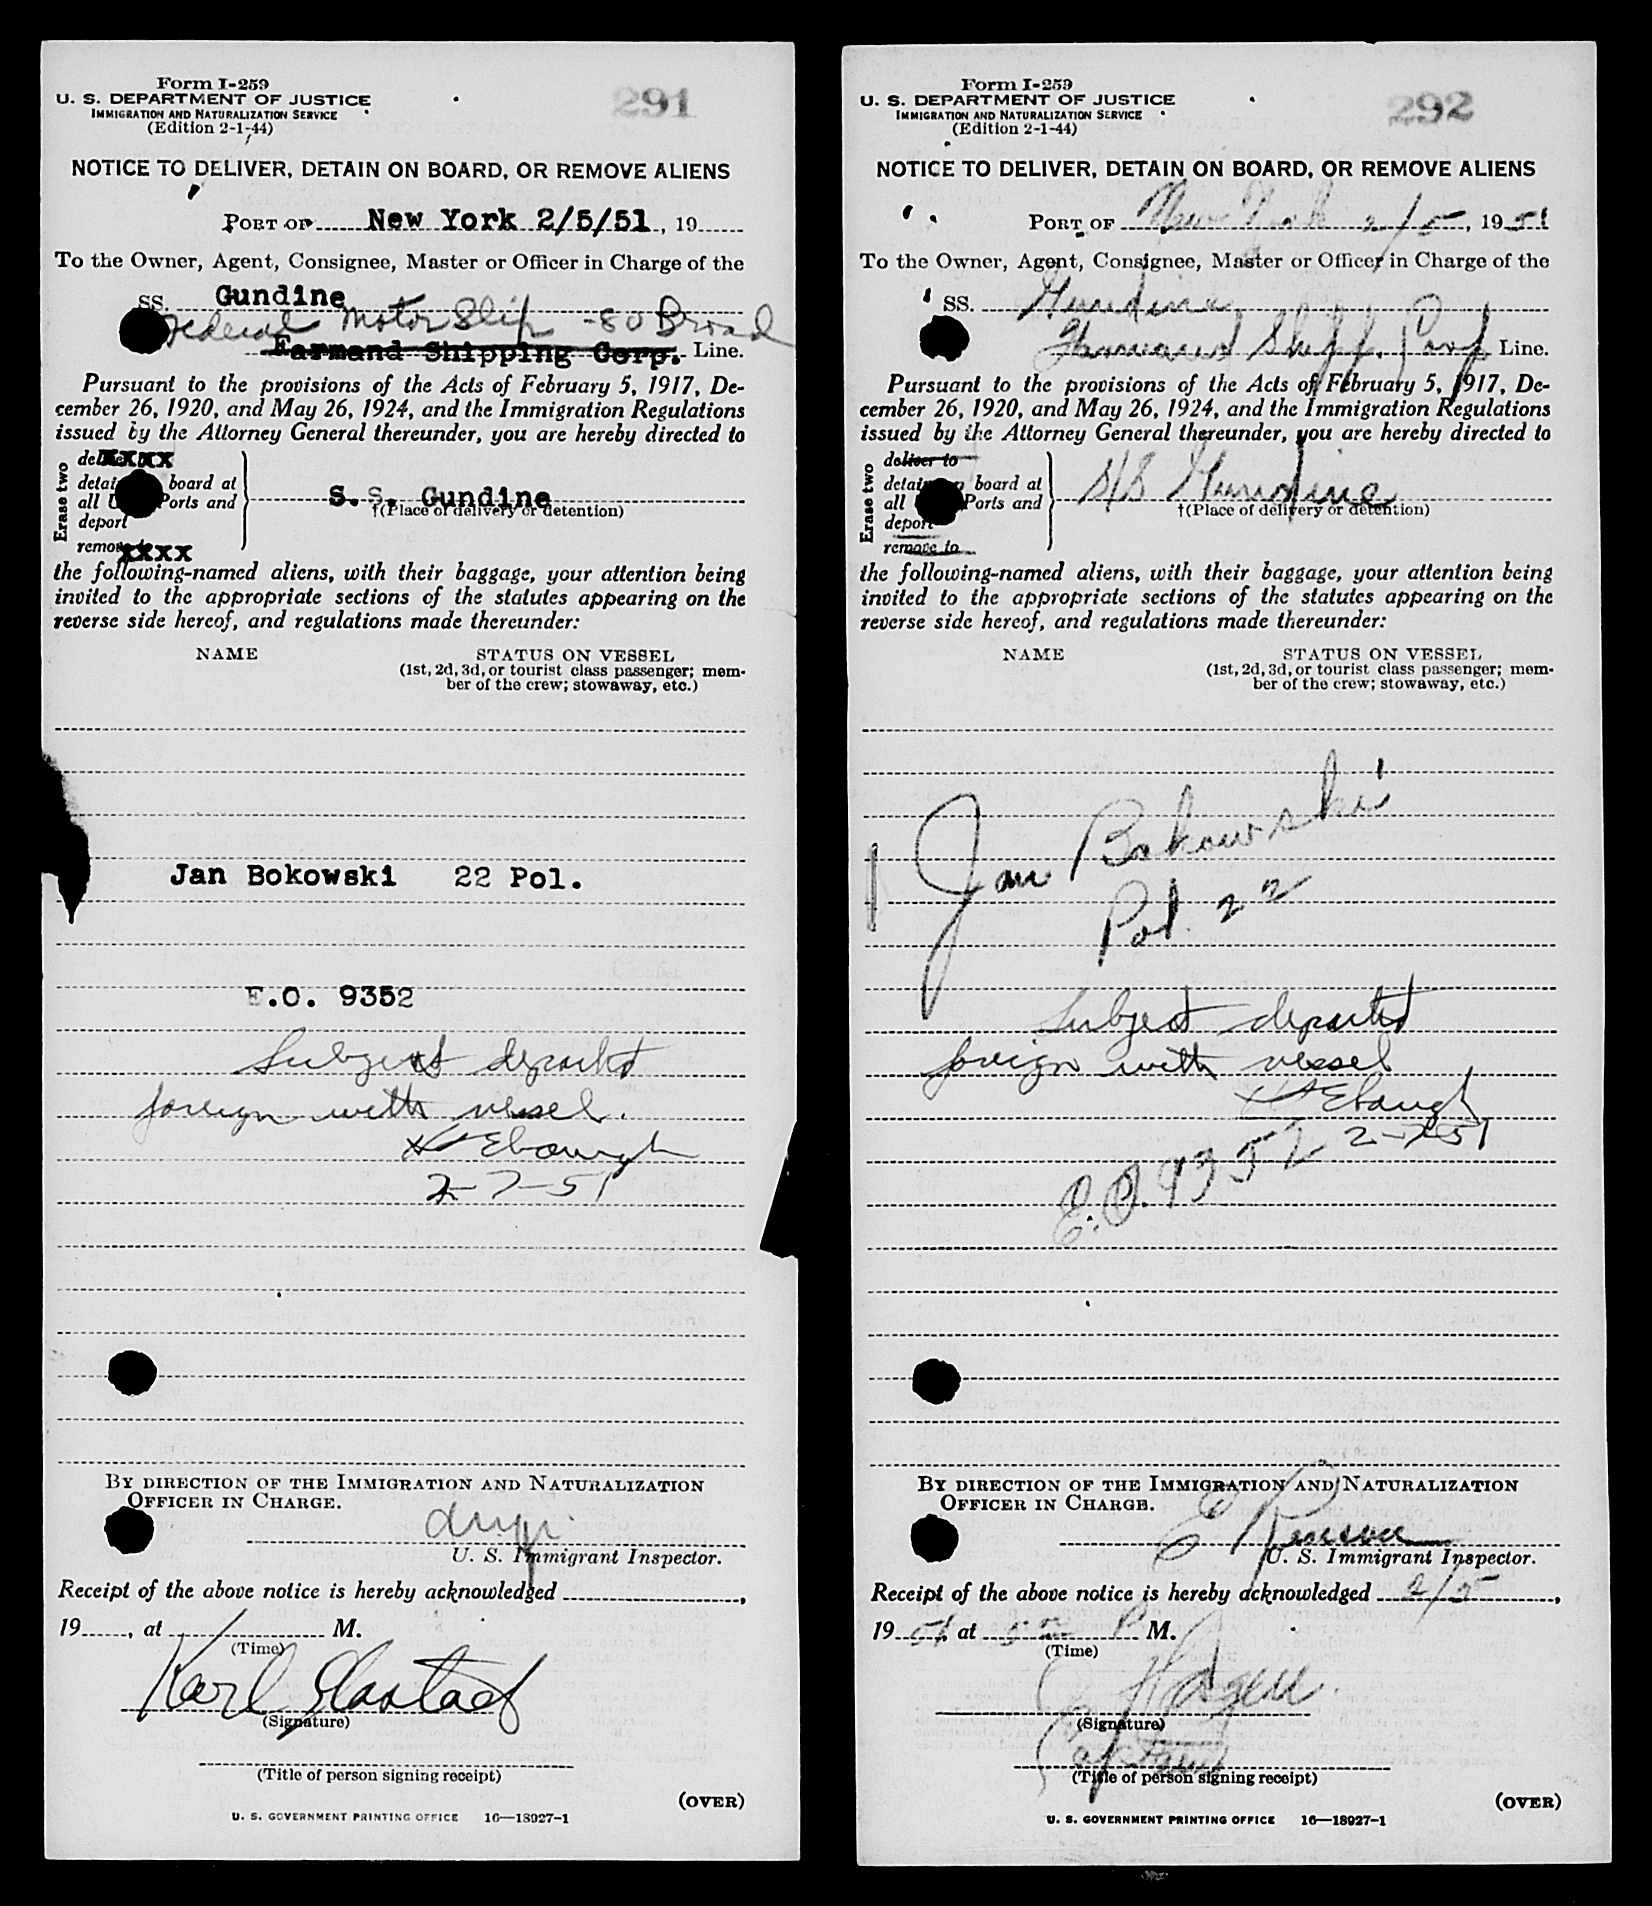 Form I-259
U. S. DEPARTMENT OF JUSTICE
IMMIGRATION AND NATURALIZATION SERVICE
(Edition 2-1-44)
291
NOTICE TO DELIVER, DETAIN ON BOARD, OR REMOVE ALIENS
PORT OF New York 2/5/51, 19
To the Owner, Agent, Consignee, Master or Officer in Charge of the
SS. Gundine
Federal Motor Ship - 80 Broad
Farmand Shipping Corp. Line.
Pursuant to the provisions of the Acts of February 5, 1917, De-
cember 26, 1920, and May 26, 1924, and the Immigration Regulations
issued by the Attorney General thereunder, you are hereby directed to
Erase two
xxxx
board at
all Ports and
S. S. Gundine
deport
†(Place of delivery or detention)
xxxx
the following-named aliens, with their baggage, your attention being
invited to the appropriate sections of the statutes appearing on the
reverse side hereof, and regulations made thereunder:
NAME STATUS ON VESSEL
(1st, 2d, 3d, or tourist class passenger; mem-
ber of the crew; stowaway, etc.)
Jan Bokowski 22 Pol.
E.O. 9352
Subject departed
foreign with vessel.
Ebaugh
2-7-51
BY DIRECTION OF THE IMMIGRATION AND NATURALIZATION
OFFICER IN CHARGE.
U. S. Immigrant Inspector.
Receipt of the above notice is hereby acknowledged ,
19 , at M.
(Time)
Karl
(Signature)
(Title of person signing receipt)
(OVER)
U. S. GOVERNMENT PRINTING OFFICE 16—18927-1
Form I-259
U. S. DEPARTMENT OF JUSTICE
IMMIGRATION AND NATURALIZATION SERVICE
(Edition 2-1-44)
292
NOTICE TO DELIVER, DETAIN ON BOARD, OR REMOVE ALIENS
PORT OF New York 2/5, 1951
To the Owner, Agent, Consignee, Master or Officer in Charge of the
SS. Gundine
Corp Line.
Pursuant to the provisions of the Acts of February 5, 1917, De-
cember 26, 1920, and May 26, 1924, and the Immigration Regulations
issued by the Attorney General thereunder, you are hereby directed to
Erase two
deliver to
board at
all Ports and
S/S Gundine
deport
†(Place of delivery or detention)
remove to
the following-named aliens, with their baggage, your attention being
invited to the appropriate sections of the statutes appearing on the
reverse side hereof, and regulations made thereunder:
NAME STATUS ON VESSEL
(1st, 2d, 3d, or tourist class passenger; mem-
ber of the crew; stowaway, etc.)
Jan Bokowski
Pol. 22
Subject departed
foreign with vessel
Ebaugh
2-7-51
E.O. 9352
BY DIRECTION OF THE IMMIGRATION AND NATURALIZATION
OFFICER IN CHARGE.
U. S. Immigrant Inspector.
Receipt of the above notice is hereby acknowledged 2/5,
1951, at P M.
(Time)
(Signature)
Captain
(Title of person signing receipt)
(OVER)
U. S. GOVERNMENT PRINTING OFFICE 16—18927-1